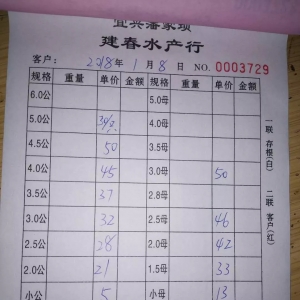 宜兴潘家坝
建春水产行
客户: 2018年1月8日 NO. 0003729
规格 重量 单价 金额 规格 重量 单价 金额
6.0公 5.0母
5.0公 4.5母
4.5公 50 3.5母
4.0公 45 3.0母 50
3.5公 37 2.8母
3.0公 32 2.5母 46
2.5公 28 2.0母 42
2.0公 21 1.5母 33
小公 5 小母 13
一联 存根(白)
二联 客户(红)